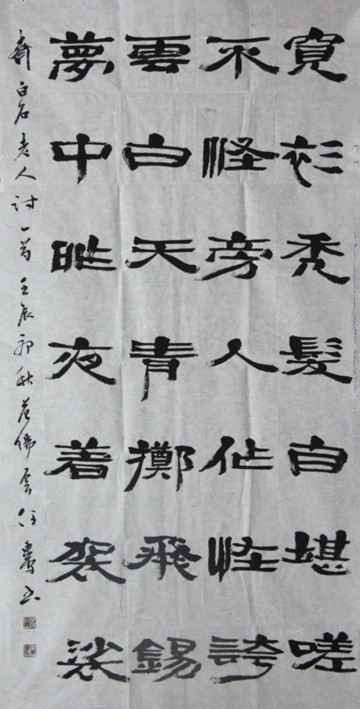 寬衣禿髮自堪嗟
不怪旁人作怪誇
雲白天青擲飛錫
夢中昨夜着袈裟
齊白石老人詩一首壬辰初秋